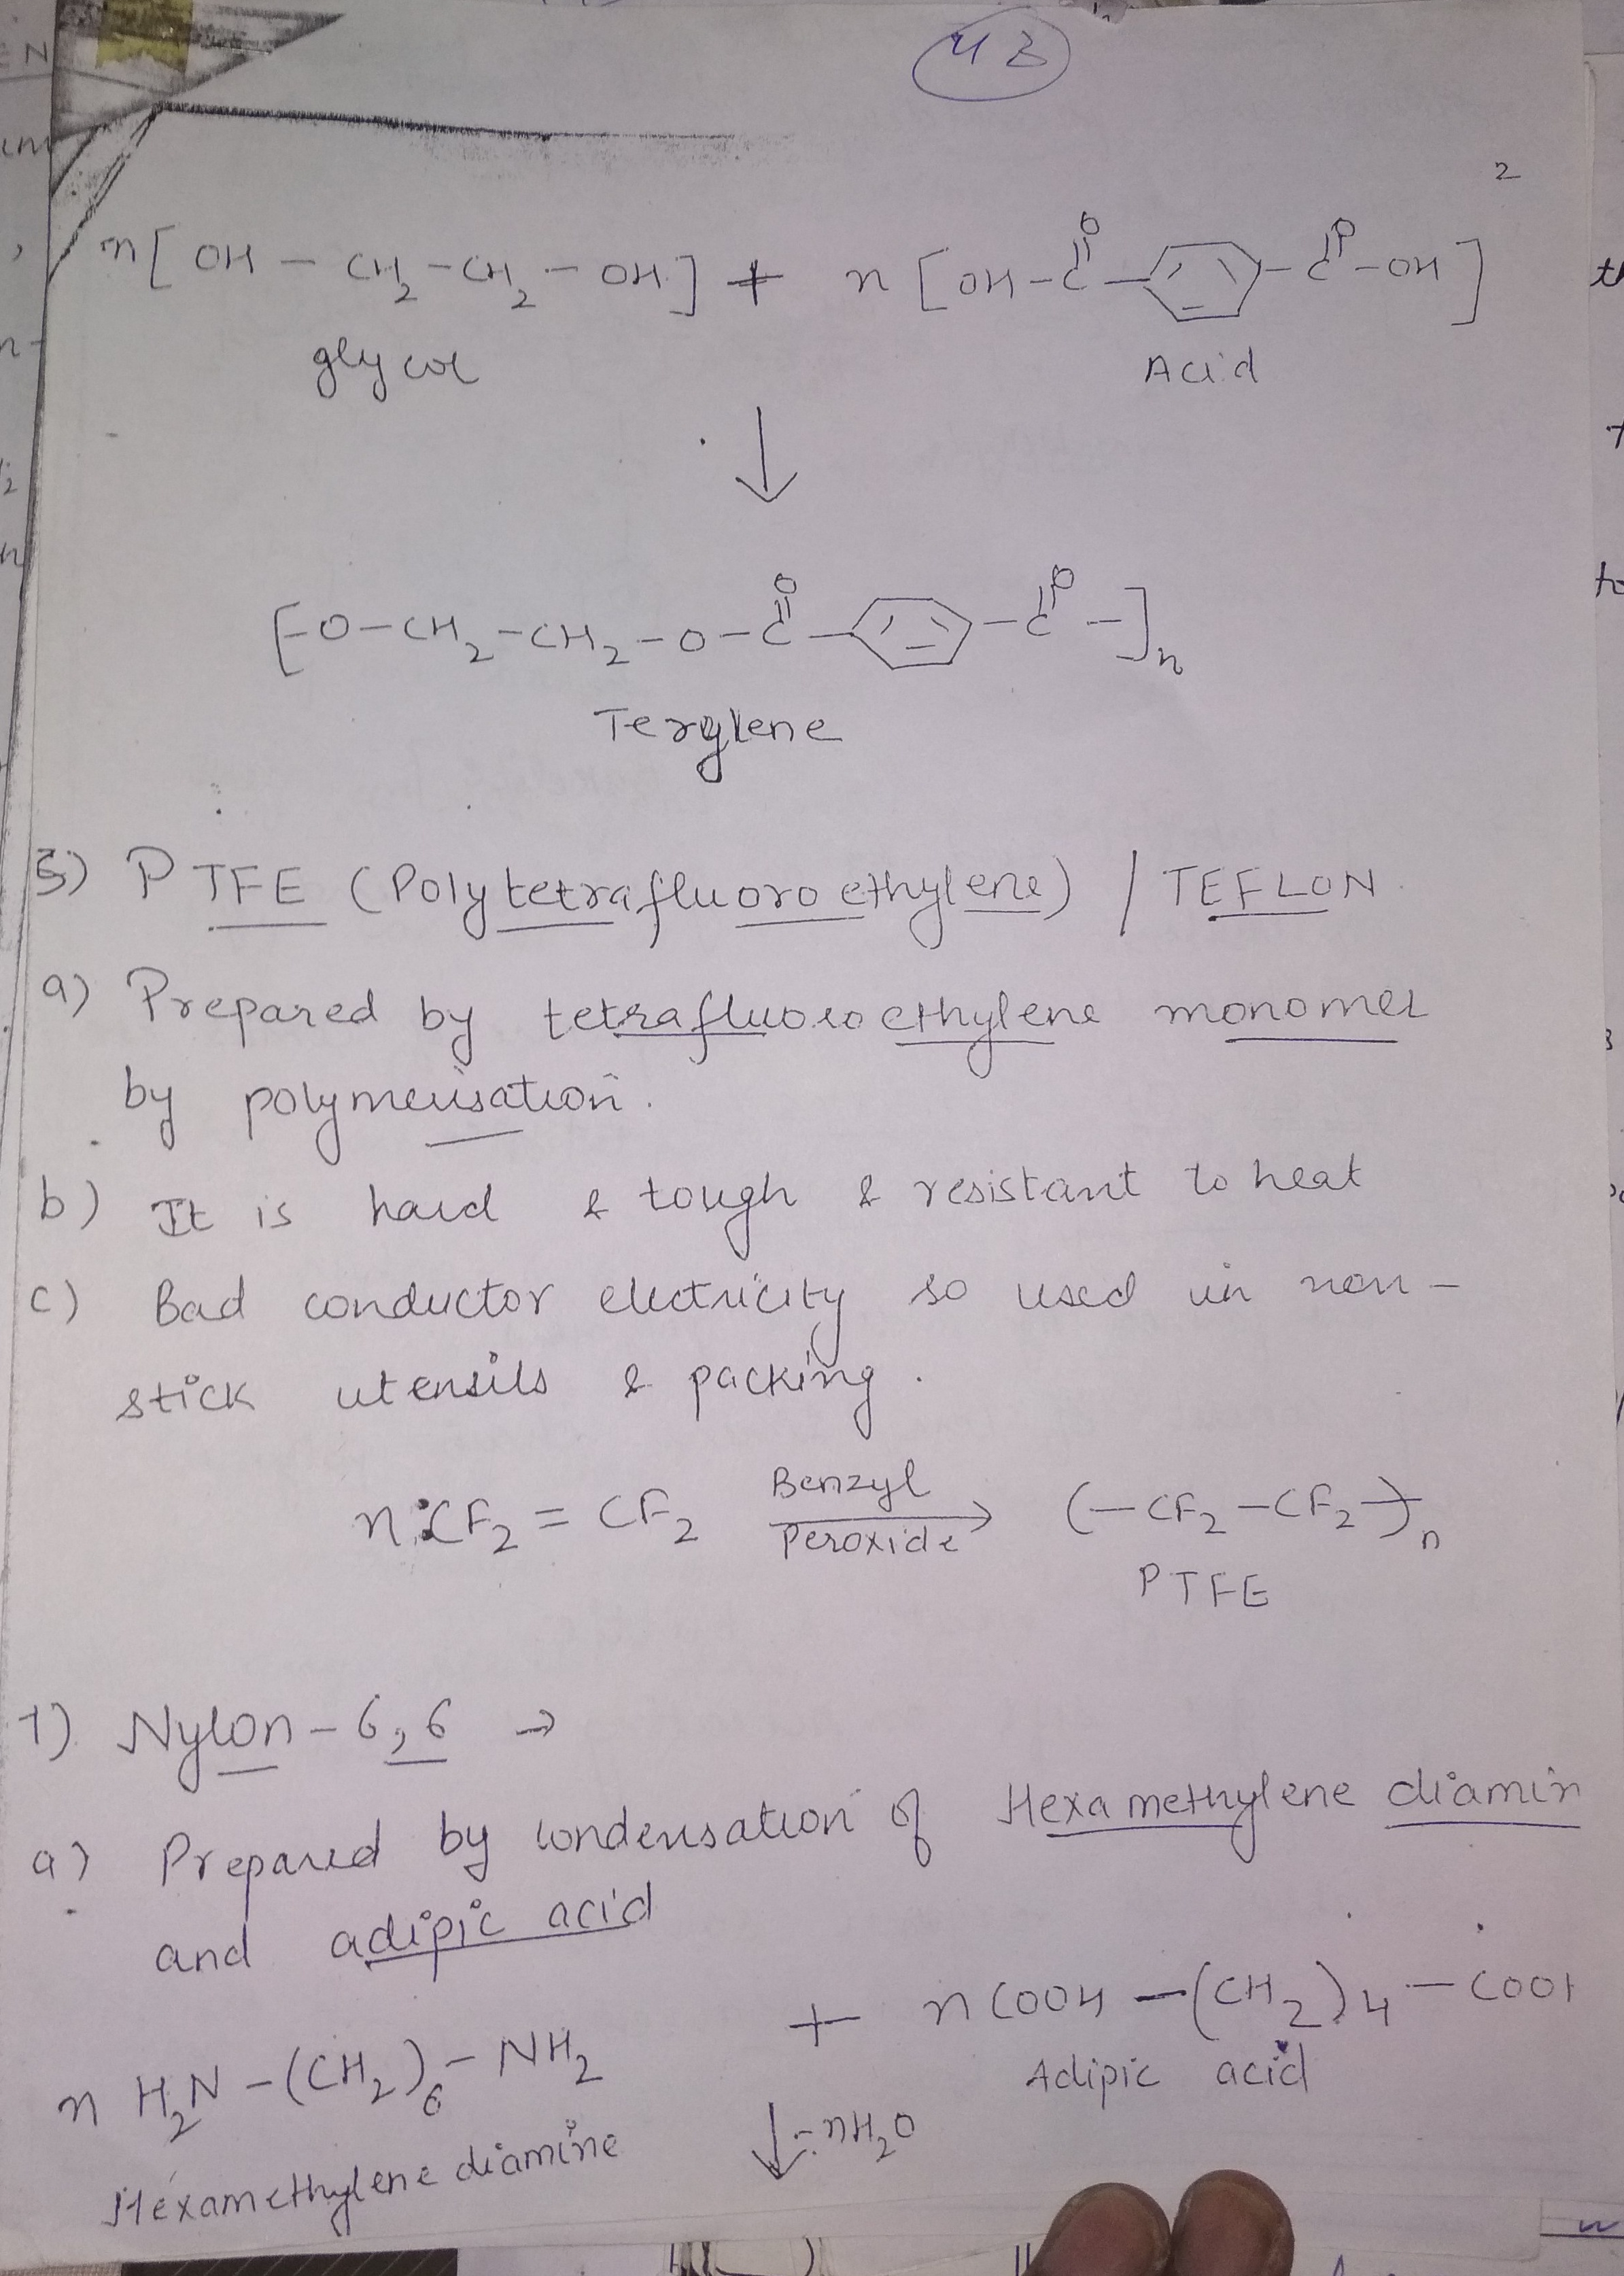 43
2
n[OH-CH2-CH2-OH] + n[OH-C-⌬-C-OH]
O O
glycol Acid
↓
O O
[-O-CH2-CH2-O-C-⌬-C-]n
Terylene
5) PTFE (Polytetrafluoroethylene) / TEFLON
a) Prepared by tetrafluoroethylene monomer
by polymerisation.
b) It is hard & tough & resistant to heat
c) Bad conductor electricity so used in non-
stick utensils & packing.
n CF2 = CF2 Benzyl Peroxide → (-CF2-CF2-)n
PTFE
1) Nylon-6,6 →
a) Prepared by condensation of Hexamethylene diamin
and adipic acid
n H2N-(CH2)6-NH2 + n COOH-(CH2)4-COOH
Hexamethylene diamine Adipic acid
↓ -nH2O